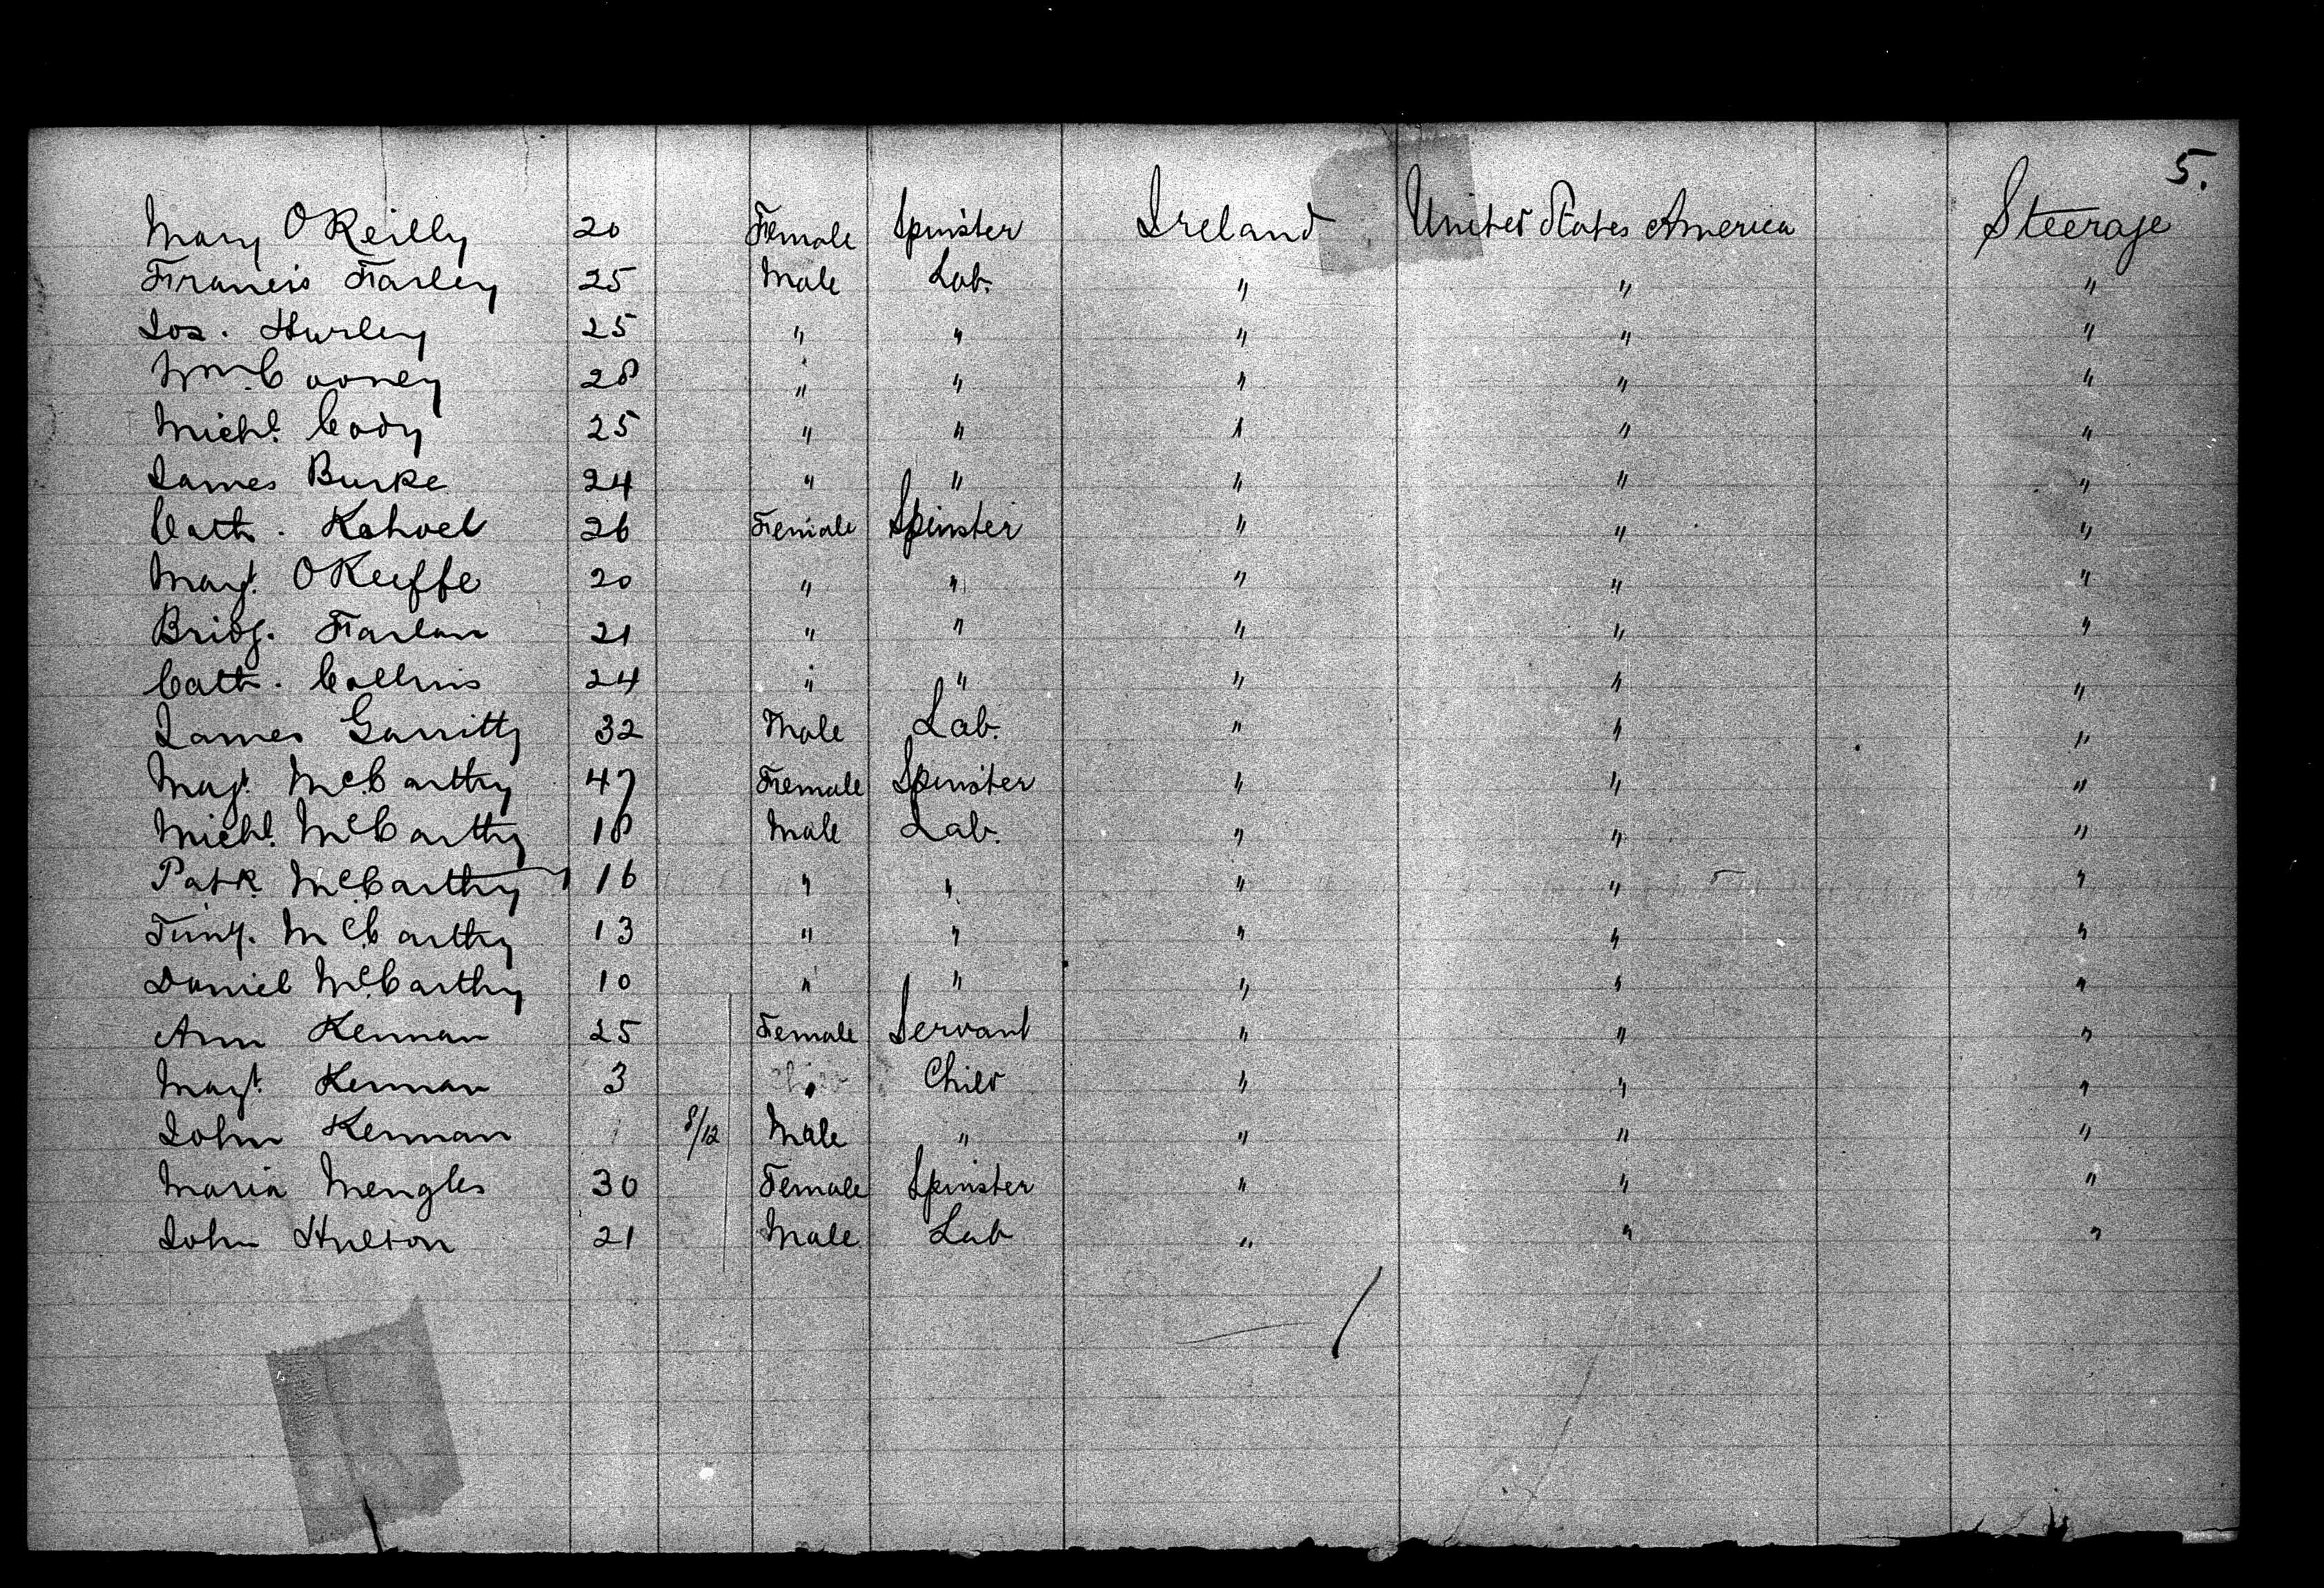 5.
Mary O'Reilly 20 Female Spinster Ireland United States America Steerage
Francis Farley 25 Male Lab. " " "
Jos. Hurley 25 " " " " "
Wm Cooney 28 " " " " "
Michl. Cody 25 " " " " "
James Burke 24 " " " " "
Cath. 26 Female Spinster " " "
Margt. O'Keeffe 20 " " " " "
Bridg. Farlan 21 " " " " "
Cath. Collins 24 " " " " "
James Garritty 32 Male Lab. " " "
Magt. McCarthy 47 Female Spinster " " "
Michl. McCarthy 18 Male Lab. " " "
Patk McCarthy 16 " " " " "
Timy. McCarthy 13 " " " " "
Daniel McCarthy 10 " " " " "
Ann Kennan 25 Female Servant " " "
Magt. Kennan 3 " Child " " "
John Kennan 8/12 Male " " " "
Maria Mengles 30 Female Spinster " " "
John Hulson 21 Male Lab " " "